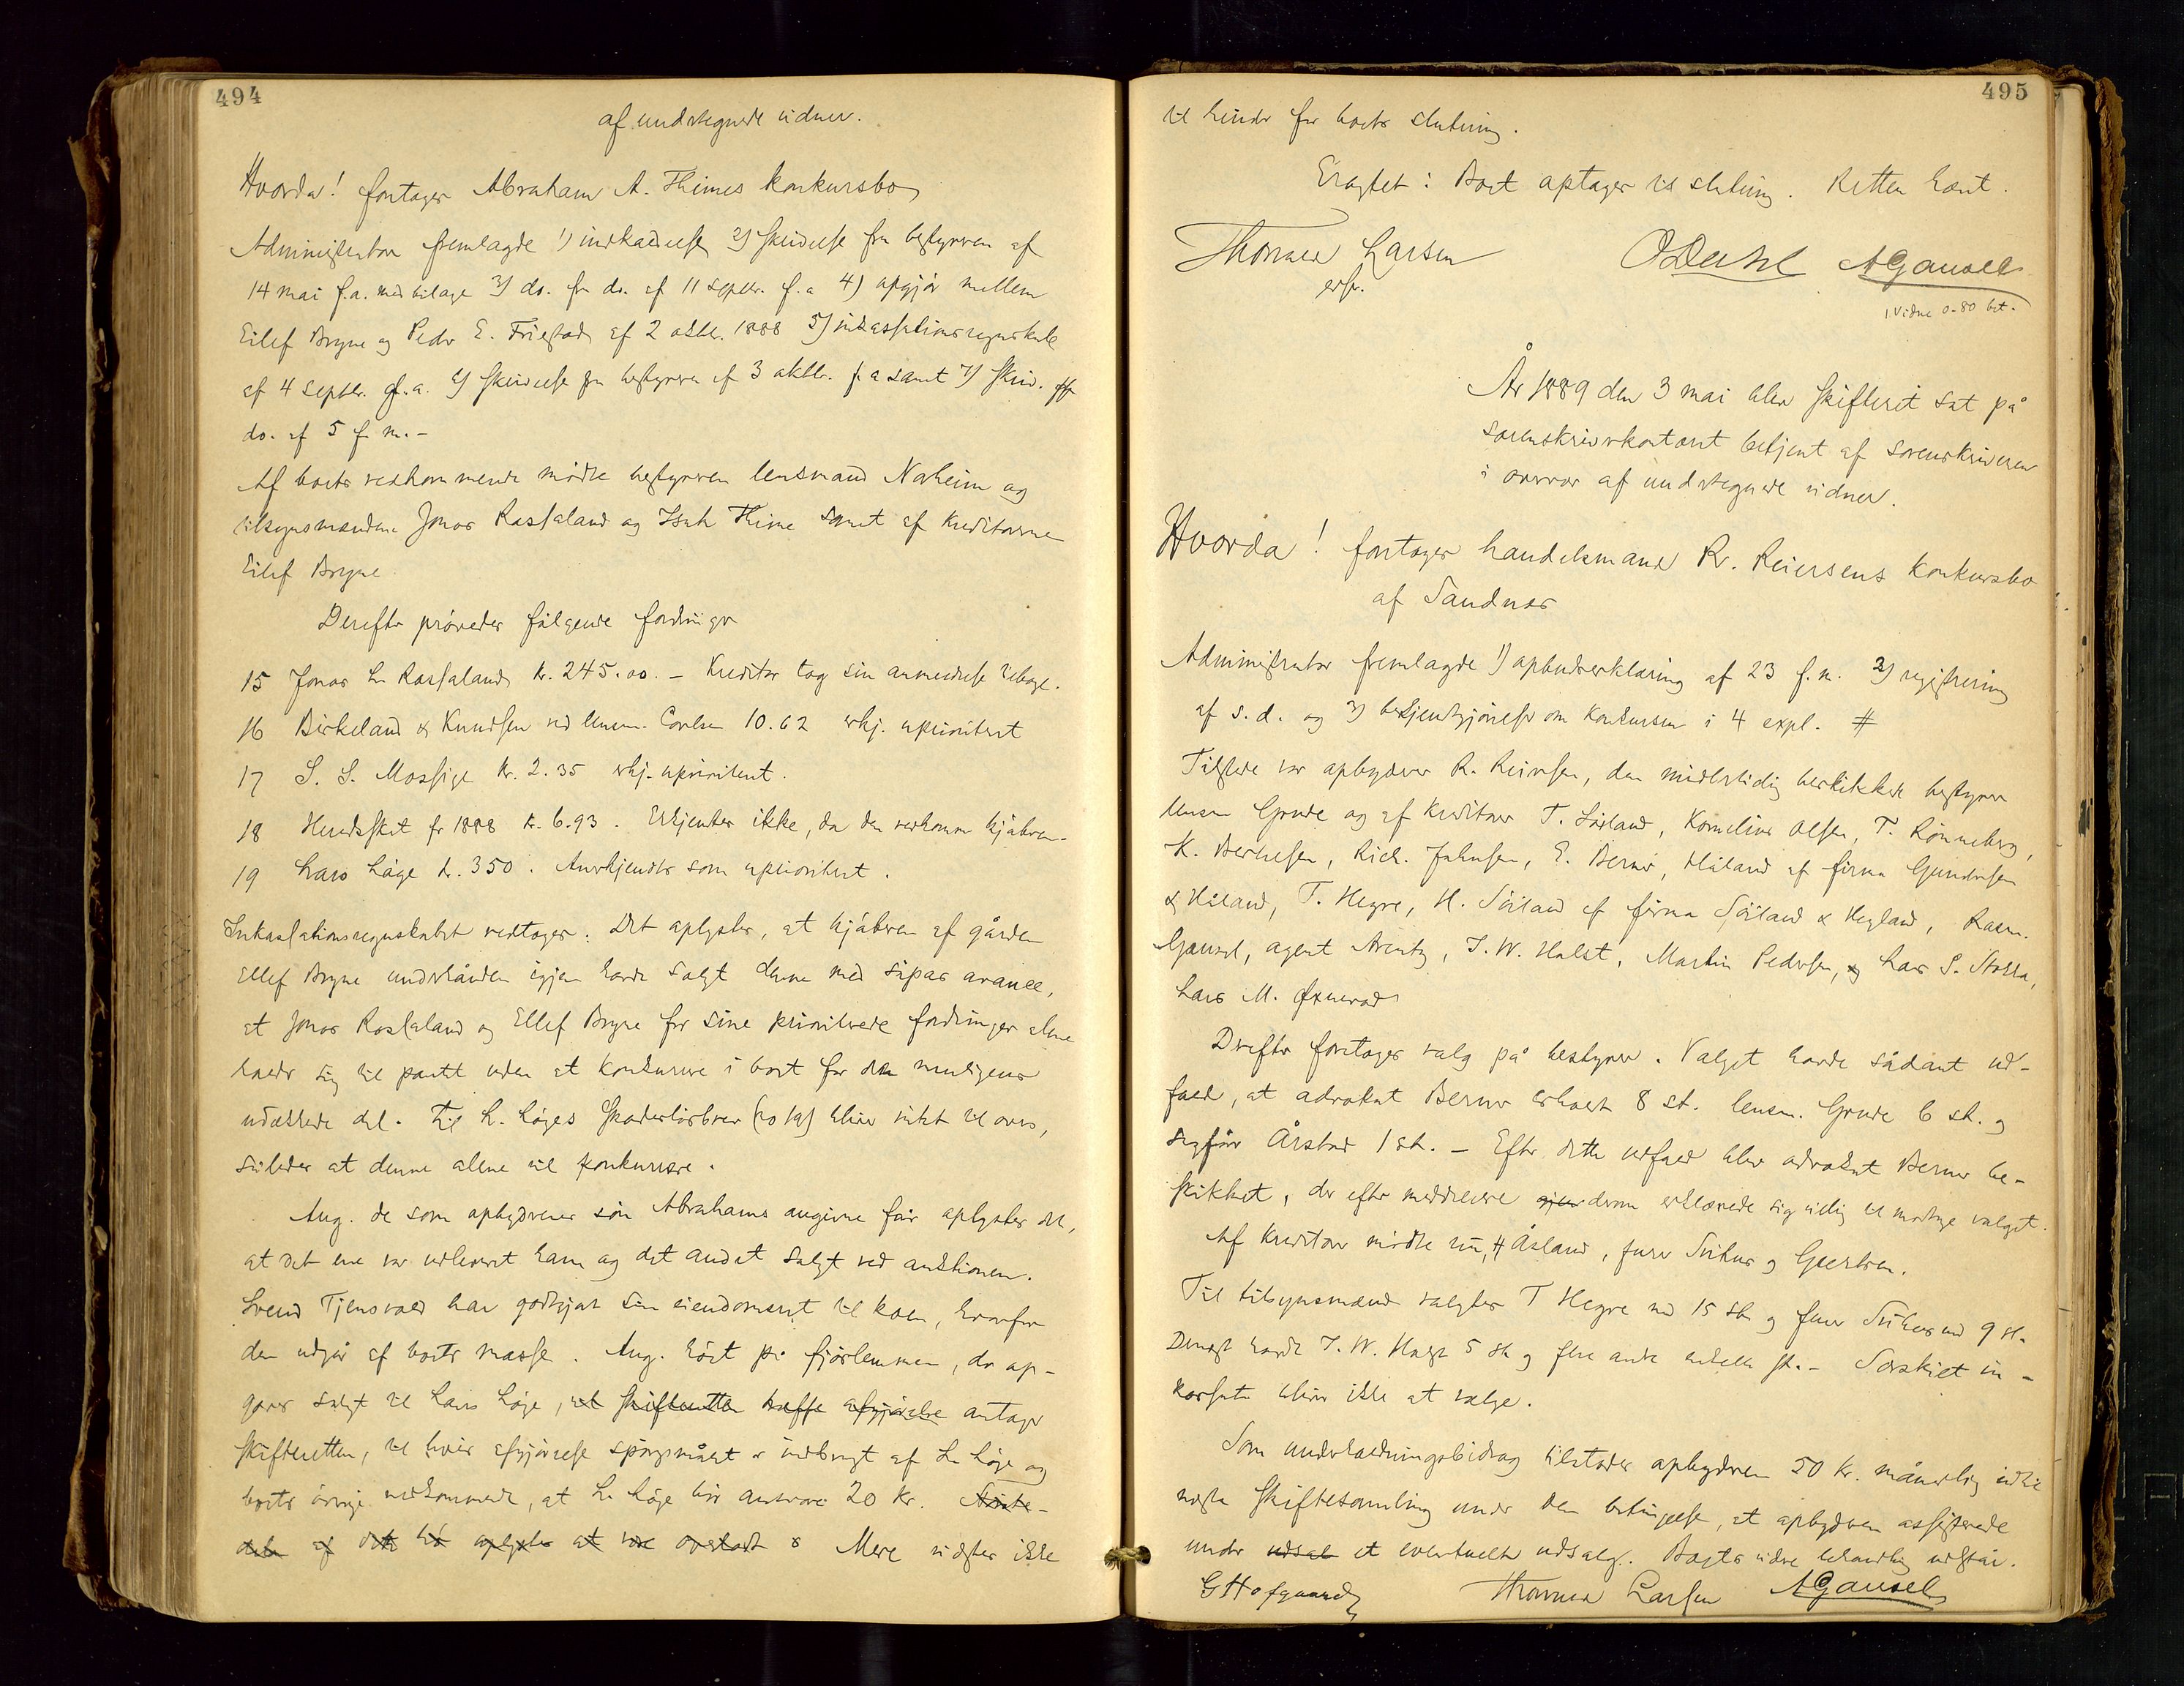 494
af undertegnede vidner.
Hvorda! foretages Abraham A. Thimes konkursbo
Administrator fremlagde 1) indkaldelse 2) skrivelse fra bestyreren af
14 mai f.a. med bilage 3) do. fra do. af 11 septbr. f.a 4) opgjør mellem
Eilef Bryne og Peder E. Friestad af 2 oktbr. 1888 5) inkassationsregnskab
af 4 septbr. f.a. 6) skrivelse fra bestyreren af 3 oktbr. f.a samt 7) skriv. fra
do. af 5 f.m. -
Af boets vedkommende mødte bestyreren lensmand Naheim og
tilsynsmændene Jonas Rossaland og Isak Thime samt af kreditorerne
Eilef Bryne
Derefter prøvedes følgende fordringer
15 Jonas L. Rossaland kr. 245.00. - Kreditor tog sin anmeldelse tilbage.
16 Birkeland & Knudsen ved lensm. 10.62 erkj. uprioritert
17 S. S. Mossige kr. 2.35 erkj. uprioritert.
18 Herredsskat for 1888 kr. 6.93. Erkjentes ikke, da den vedkommer kjøberen.
19 Lars Høge kr. 350. Anerkjendtes som uprioritert.
Inkassationsregnskabet vedtoges. Det oplystes, at kjøberen af gården
Ellef Bryne underhånden igjen havde solgt denne med såpas avance,
at Jonas Rossaland og Ellef Bryne for sine prioriterede fordringer alene
holder sig til pantet uden at konkurrere i boet for den muligens
udækkede del. Til L. Høges skadesløsbrev bliver intet til overs,
således at denne alene vil konkurrere.
Aug. de som opbyderens søn Abrahams angivne får oplystes det,
at det ene var udleveret ham og det andet solgt ved auktionen.
Svend Tjensvold har godtgjort sin eiendomsret til koen, hvorfor
den udgår af boets masse. Aug. høet på fjøslemmen, der op-
gaves solgt til Lars Høge, at skifteretten træffe afgjørelse antager
skifteretten, til hvis afgjørelse spørgsmålet er indbragt af L. Høge og
boets øvrige vedkommende, at L. Høge bør ansvare 20 kr.
af dette hø oplystes at være Mere vidstes ikke
495
til hinder for boets slutning.
Eragtet: Boet optages til slutning. Retten hævet.
Thomas Larsen
ODahl AGausel
1 vidne 0-80 bet.
År 1889 den 3 mai blev skifteret sat på
sorenskriverkontoret betjent af sorenskriveren
i overvær af undertegnede vidner.
Hvorda! foretages handelsmand R. Reiersens konkursbo
af Sandnes
Administrator fremlagde 1) opbudserklæring af 23 f.m. 2) registrering
af s.d. og 3) bekjentgjørelse om konkursen i 4 expl. #
Tilstede var opbyderen R. Reiersen, den midlertidig beskikkede bestyrer
lensm Grude og af kreditorer T. Søiland, Kornelius Olsen, T. Rønneberg,
K. Berthsen, Rich. Johnsen, E. Berner, Håland af firma Gundersen
& Håland, T. Hegre, H. Søiland af firma Søiland & Hegland, Rasm.
Gausel, agent Arentz, J. W. Holst, Martin Pedersen, og Lars S. Stokka,
Lars M. Øxnevad
Derefter foretoges valg på bestyrer. Valget havde sådant ud-
fald, at advokat Berner erholdt 8 st. lensm. Grude 6 st. og
sagfører Årstad 1 st. - Efter dette udfald blev advokat Berner be-
skikket, der efter meddelelse derom erklærede sig villig til modtage valget.
Af kreditorer mødte nu, H Åsland, og Gjertsen.
Til tilsynsmænd valgtes T Hegre med 15 st. og med 9 st.
Dernæst havde J. W. Holst 5 st og flere andre enkelte st. - Særskilt in-
kassator bliver ikke at vælge.
Som underholdningsbidrag tilstodes opbyderen 50 kr. månedlig indtil
næste skiftesamling under den betingelse, at opbyderen assisterede
under udsal et eventuelt udsalg. Boets videre behandling udstår.
GHofgaard Thomas Larsen AGausel